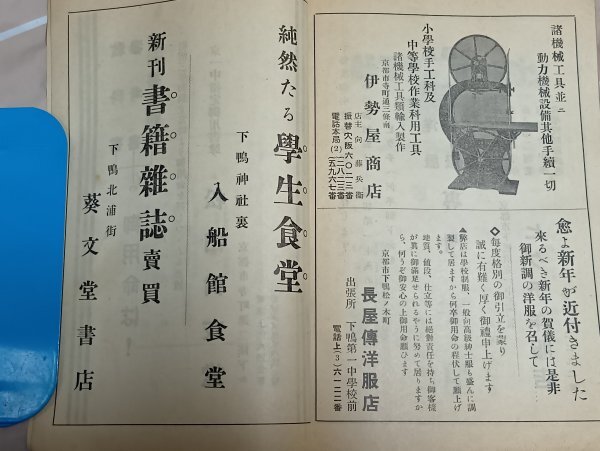 諸機械工具並ニ
動力機械設備其他手續一切
小學校手工科及
中等學校作業科用工具
諸機械工具類輸入製作
京都市寺町通三條南
伊勢屋商店
店主 向藤兵衛
振替大阪六〇二三番
電話本局(2)
二八二三番
五九六七番
愈よ新年が近付きました
來るべき新年の賀儀には是非
御新調の洋服を召して
◇每度格別の御引立を蒙り
誠に有難く厚く御禮申上げます
▲弊店は學校制服、一般向高級紳士服も盛んに調
製して居ますから何卒御用命の程伏して願上げ
ます。
地質、値段、仕立等には絕對責任を持ち御客樣
が真に御滿足せられるやうに努めて居りますか
ら、何うぞ御安心の上御用命願ひます
京都市下鴨松ノ木町
長屋傳洋服店
出張所 下鴨第一中學校前
電話上(3)六一二二番
純然たる學生食堂
下鴨神社裏
入船館食堂
新刊書籍雜誌賣買
下鴨北浦街
葵文堂書店